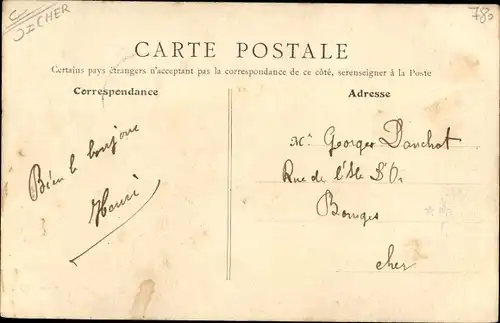 CHER
78
CARTE POSTALE
Certains pays étrangers n'acceptant pas la correspondance de ce côté, serenseigner à la Poste
Correspondance
Adresse
Bien le bonjour
Henri
Mr Georges Danchot
Rue de l'Isle d'Or
Bourges
cher